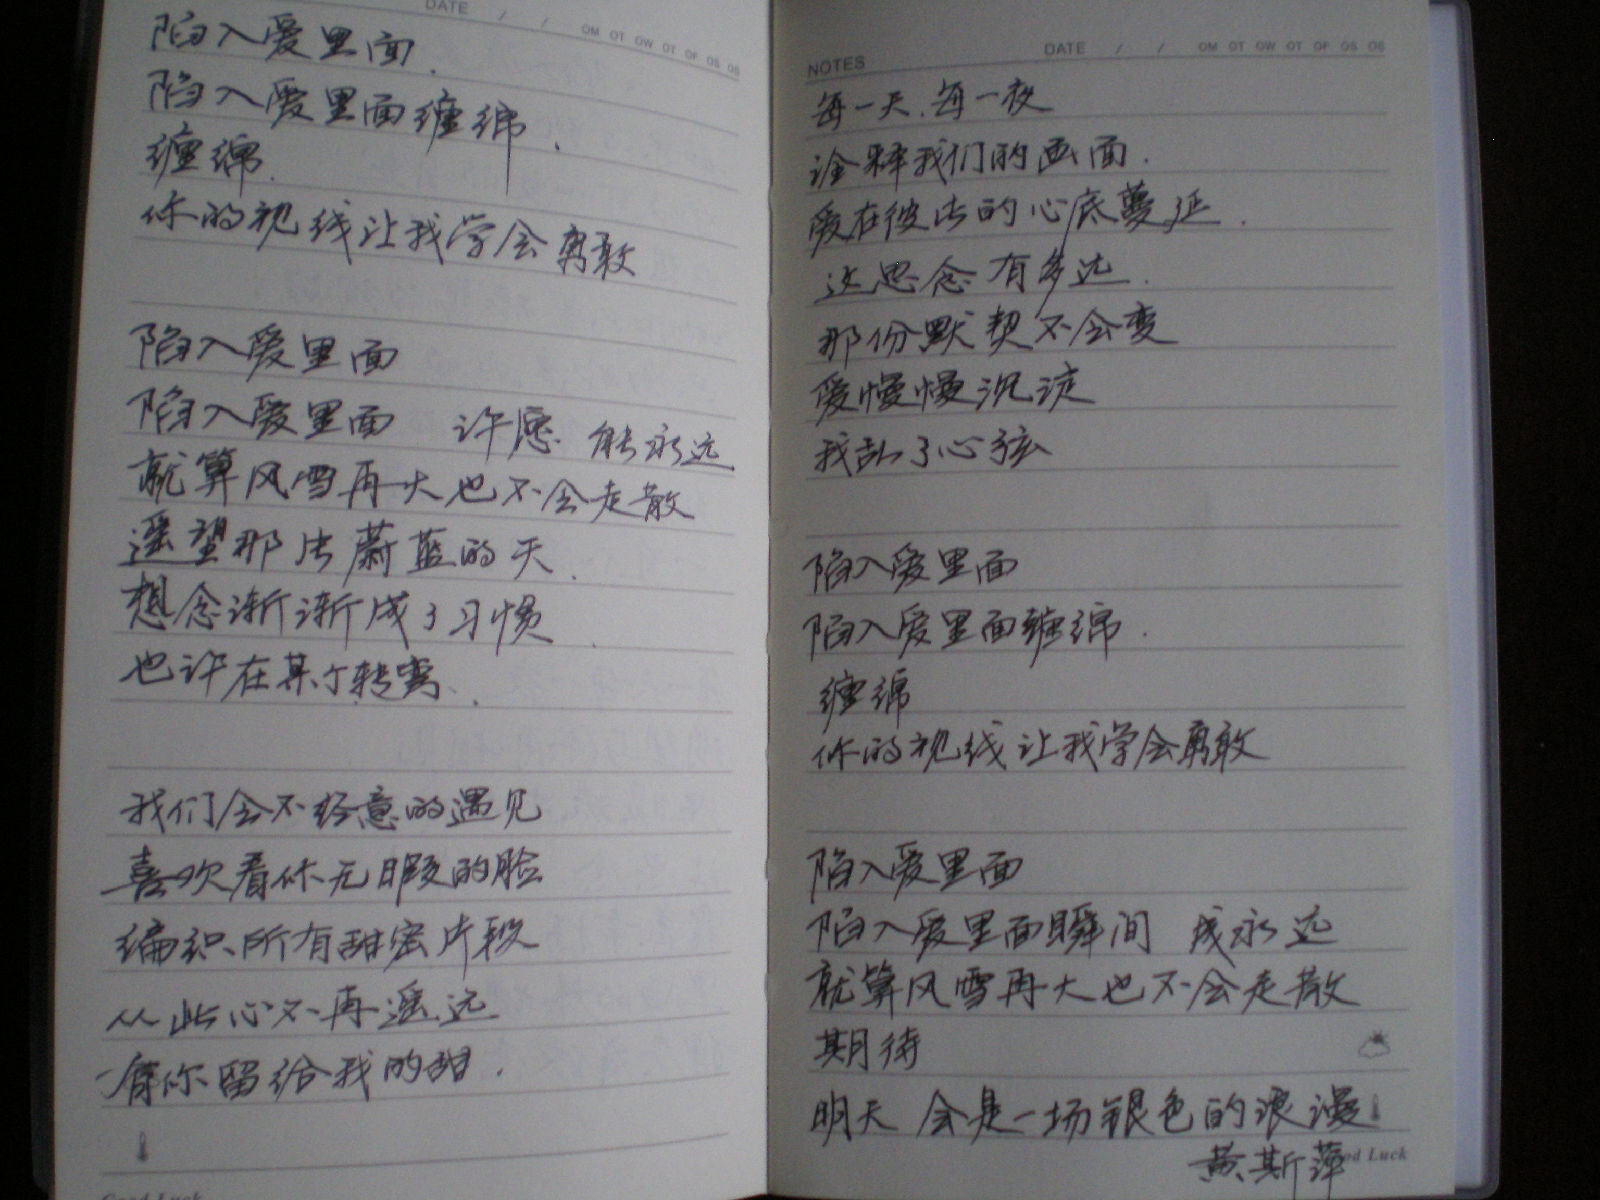 DATE / / OM OT OW OT OF OS OS
陷入爱里面.
陷入爱里面缠绵.
缠绵.
你的视线让我学会勇敢
陷入爱里面
陷入爱里面 许愿 能永远
就算风雪再大也不会走散
遥望那片蔚蓝的天.
想念渐渐成了习惯.
也许在某个转弯.
我们会不经意的遇见
喜欢看你无暇的脸
编织所有甜蜜片段
从此心不再遥远
有你留给我的甜.
Good Luck
NOTES DATE / / OM OT OW OT OF OS OS
每一天.每一夜
诠释我们的画面.
爱在彼此的心底蔓延.
这思念有多远.
那份默契不会变
爱慢慢沉淀
我乱了心弦
陷入爱里面
陷入爱里面缠绵.
缠绵
你的视线让我学会勇敢
陷入爱里面
陷入爱里面瞬间 成永远
就算风雪再大也不会走散
期待
明天 会是一场银色的浪漫
黄斯萍
Good Luck